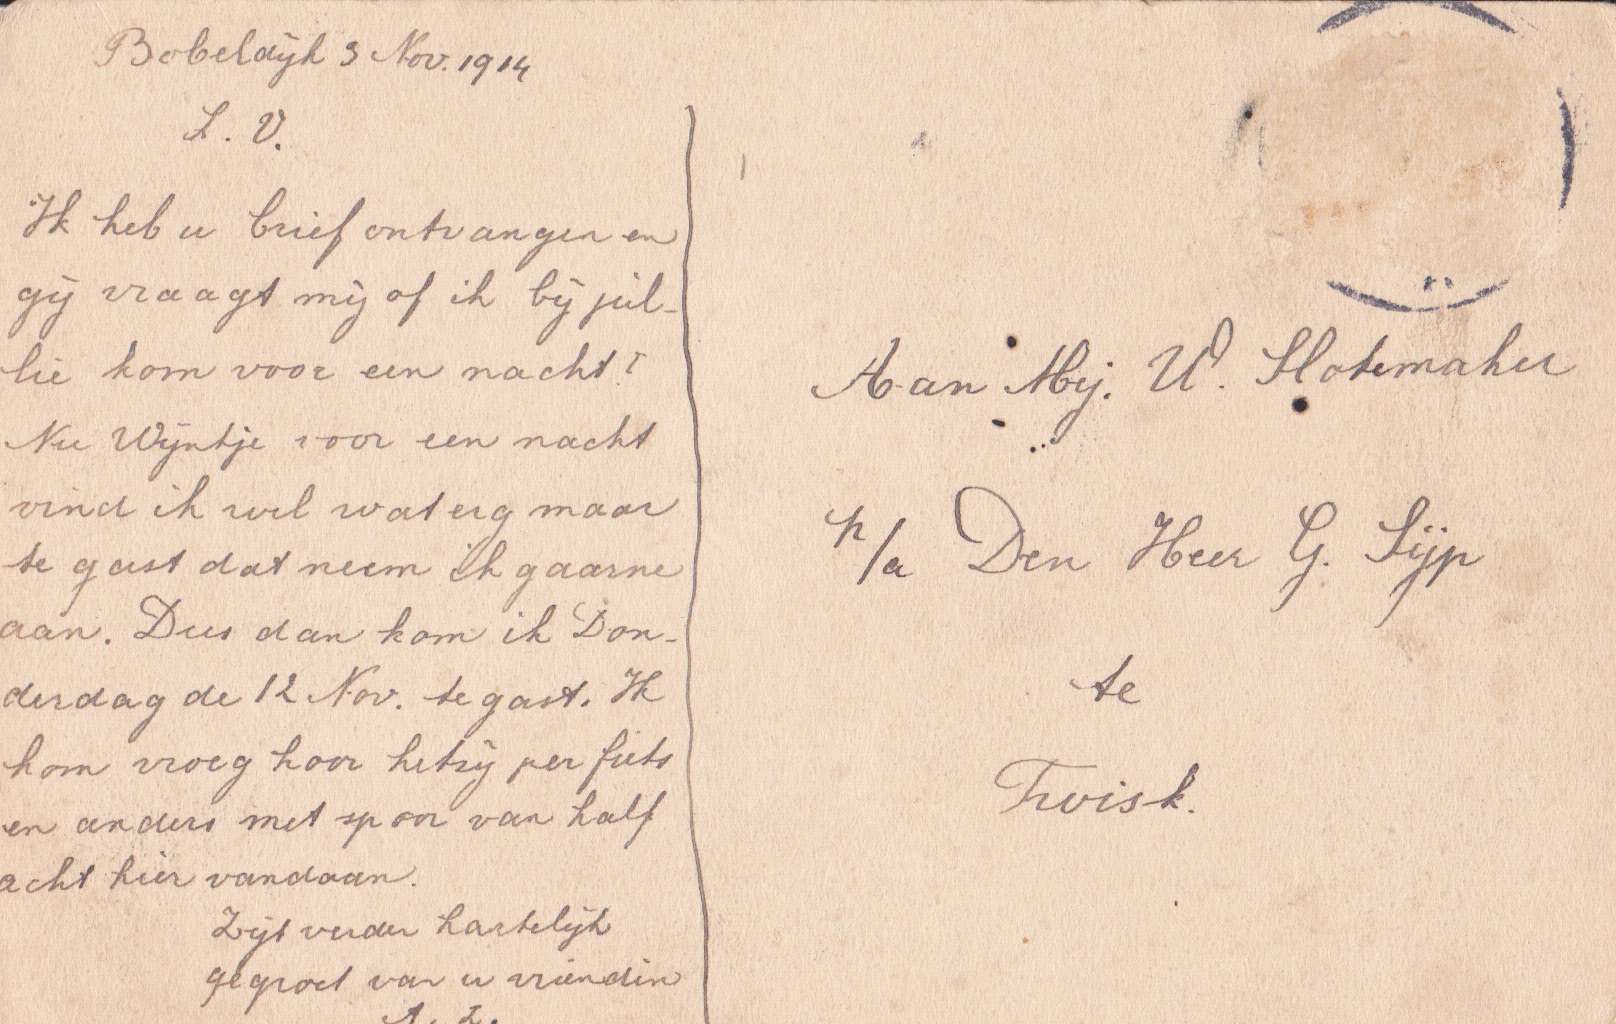 Bobeldijk 3 Nov. 1914
L. V.
Ik heb u brief ontvangen en
gij vraagt mij of ik bij jul-
lie kom voor een nacht!
Nu Wijntje voor een nacht
vind ik wel wat erg maar
te gast dat neem ik gaarne
aan. Dus dan kom ik Don-
derdag de 12 Nov. te gast. Ik
kom vroeg hoor hetzij per fiets
en anders met spoor van half
acht hier vandaan.
Zijt verder hartelijk
gegroet van u vriendin
Aan Mej. W. Slotemaker
p/a Den Heer G. Sijp
te
Twisk.